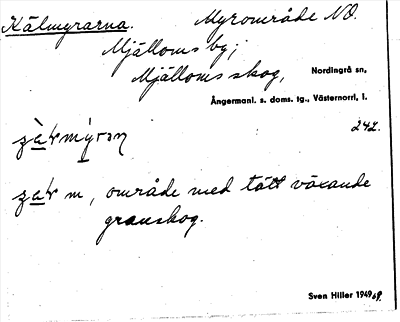 Kälmyrarna. Myrområde NO.
Mjälloms by;
Mjälloms skog, Nordingrå sn,
Ångermanl. s. doms. tg., Västernorrl, l.
242.
m, område med tätt växande
granskog.
Sven Hiller 1949